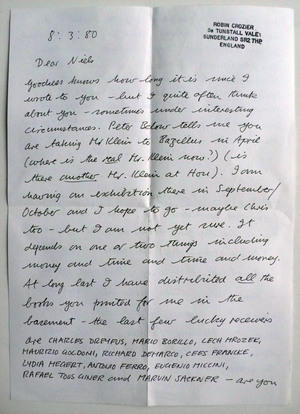 8: 3: 80
ROBIN CROZIER
5B TUNSTALL VALE
SUNDERLAND SR2 7HP
ENGLAND
Dear Niels
Goodness knows how long it is since I
wrote to you - but I quite often think
about you - sometimes under interesting
circumstances. Peter Below tells me you
are taking Mr. Klein to Bazellus in April
(where is the real Mr. Klein now?) (is
there another Mr. Klein at Hou). I am
having an exhibition there in September/
October and I hope to go - maybe Chris
too - but I am not yet sure. It
depends on one or two things including
money and time and time and money.
At long last I have distributed all the
books you printed for me in the
basement - the last few lucky receivers
are CHARLES DREYFUS, MARIO BORILLO, LECH MROZEK,
MAURIZIO GOLDONI, RICHARD DEMARCO, CEES FRANCKE,
LYDIA MEGERT, ANTONO FERRO, EUGENIO MICCINI,
RAFAEL TOUS GINER and MARVIN SACKNER - are you